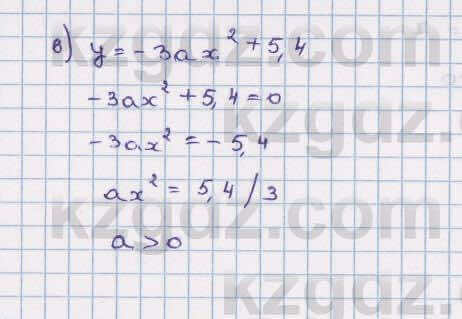 в) y = -3ax² + 5,4
-3ax² + 5,4 = 0
-3ax² = -5,4
ax² = 5,4 / 3
a > 0
kzgdz.com
kzgdz.com
kzgdz.com
kzgdz.com